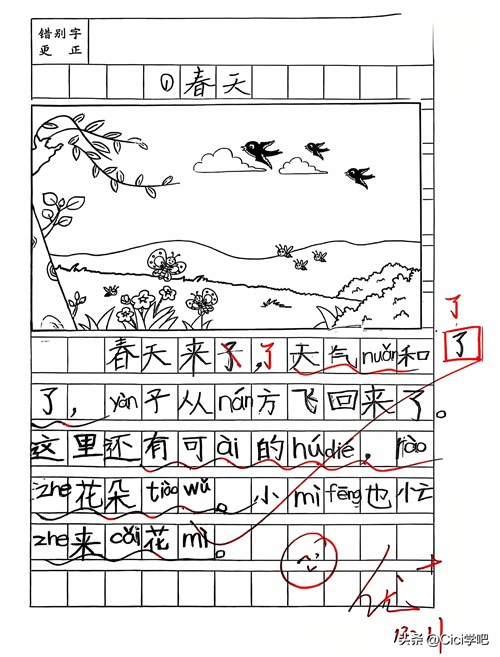 错别字
更正
①春天
了
春天来了,了天气nuǎn和
了
了,yàn子从nán方飞回来了。
这里还有可ài的húdié,
zhe花朵tiàowǔ。小mìfēng也忙
zhe来cǎi花mì。
优+
头条@Cici学吧